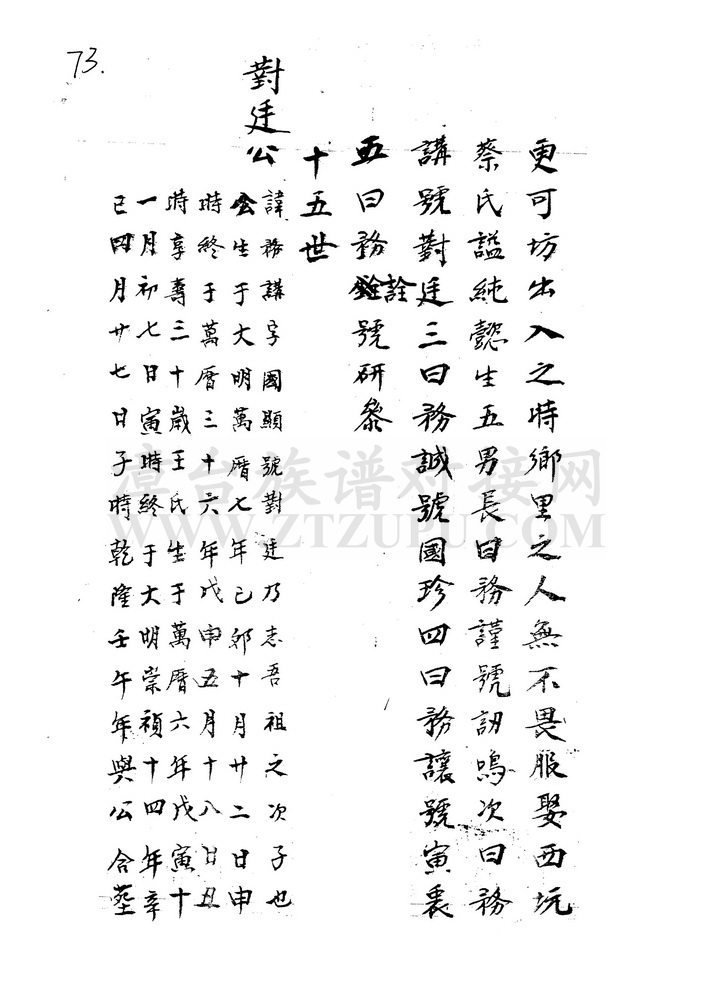 73.
更可坊出入之時鄉里之人無不畏服娶西坑
蔡氏謚純懿生五男長曰務謹號訒鳴次曰務
講號對廷三曰務誠號國珍四曰務讓號寅
五曰務詮號研
十五世
對廷公
諱務講字國顯號對廷乃志吾祖之次子也
公生于大明萬曆七年己卯十月廿二日申
時終于萬曆三十六年戊申五月十八日丑
時享壽三十歲王氏生于萬曆六年戊寅十
一月初七日寅時終于大明崇禎十四年辛
巳四月廿七日子時乾隆壬午年與公合塟
漳台族谱对接网
WWW.ZTZUPU.COM